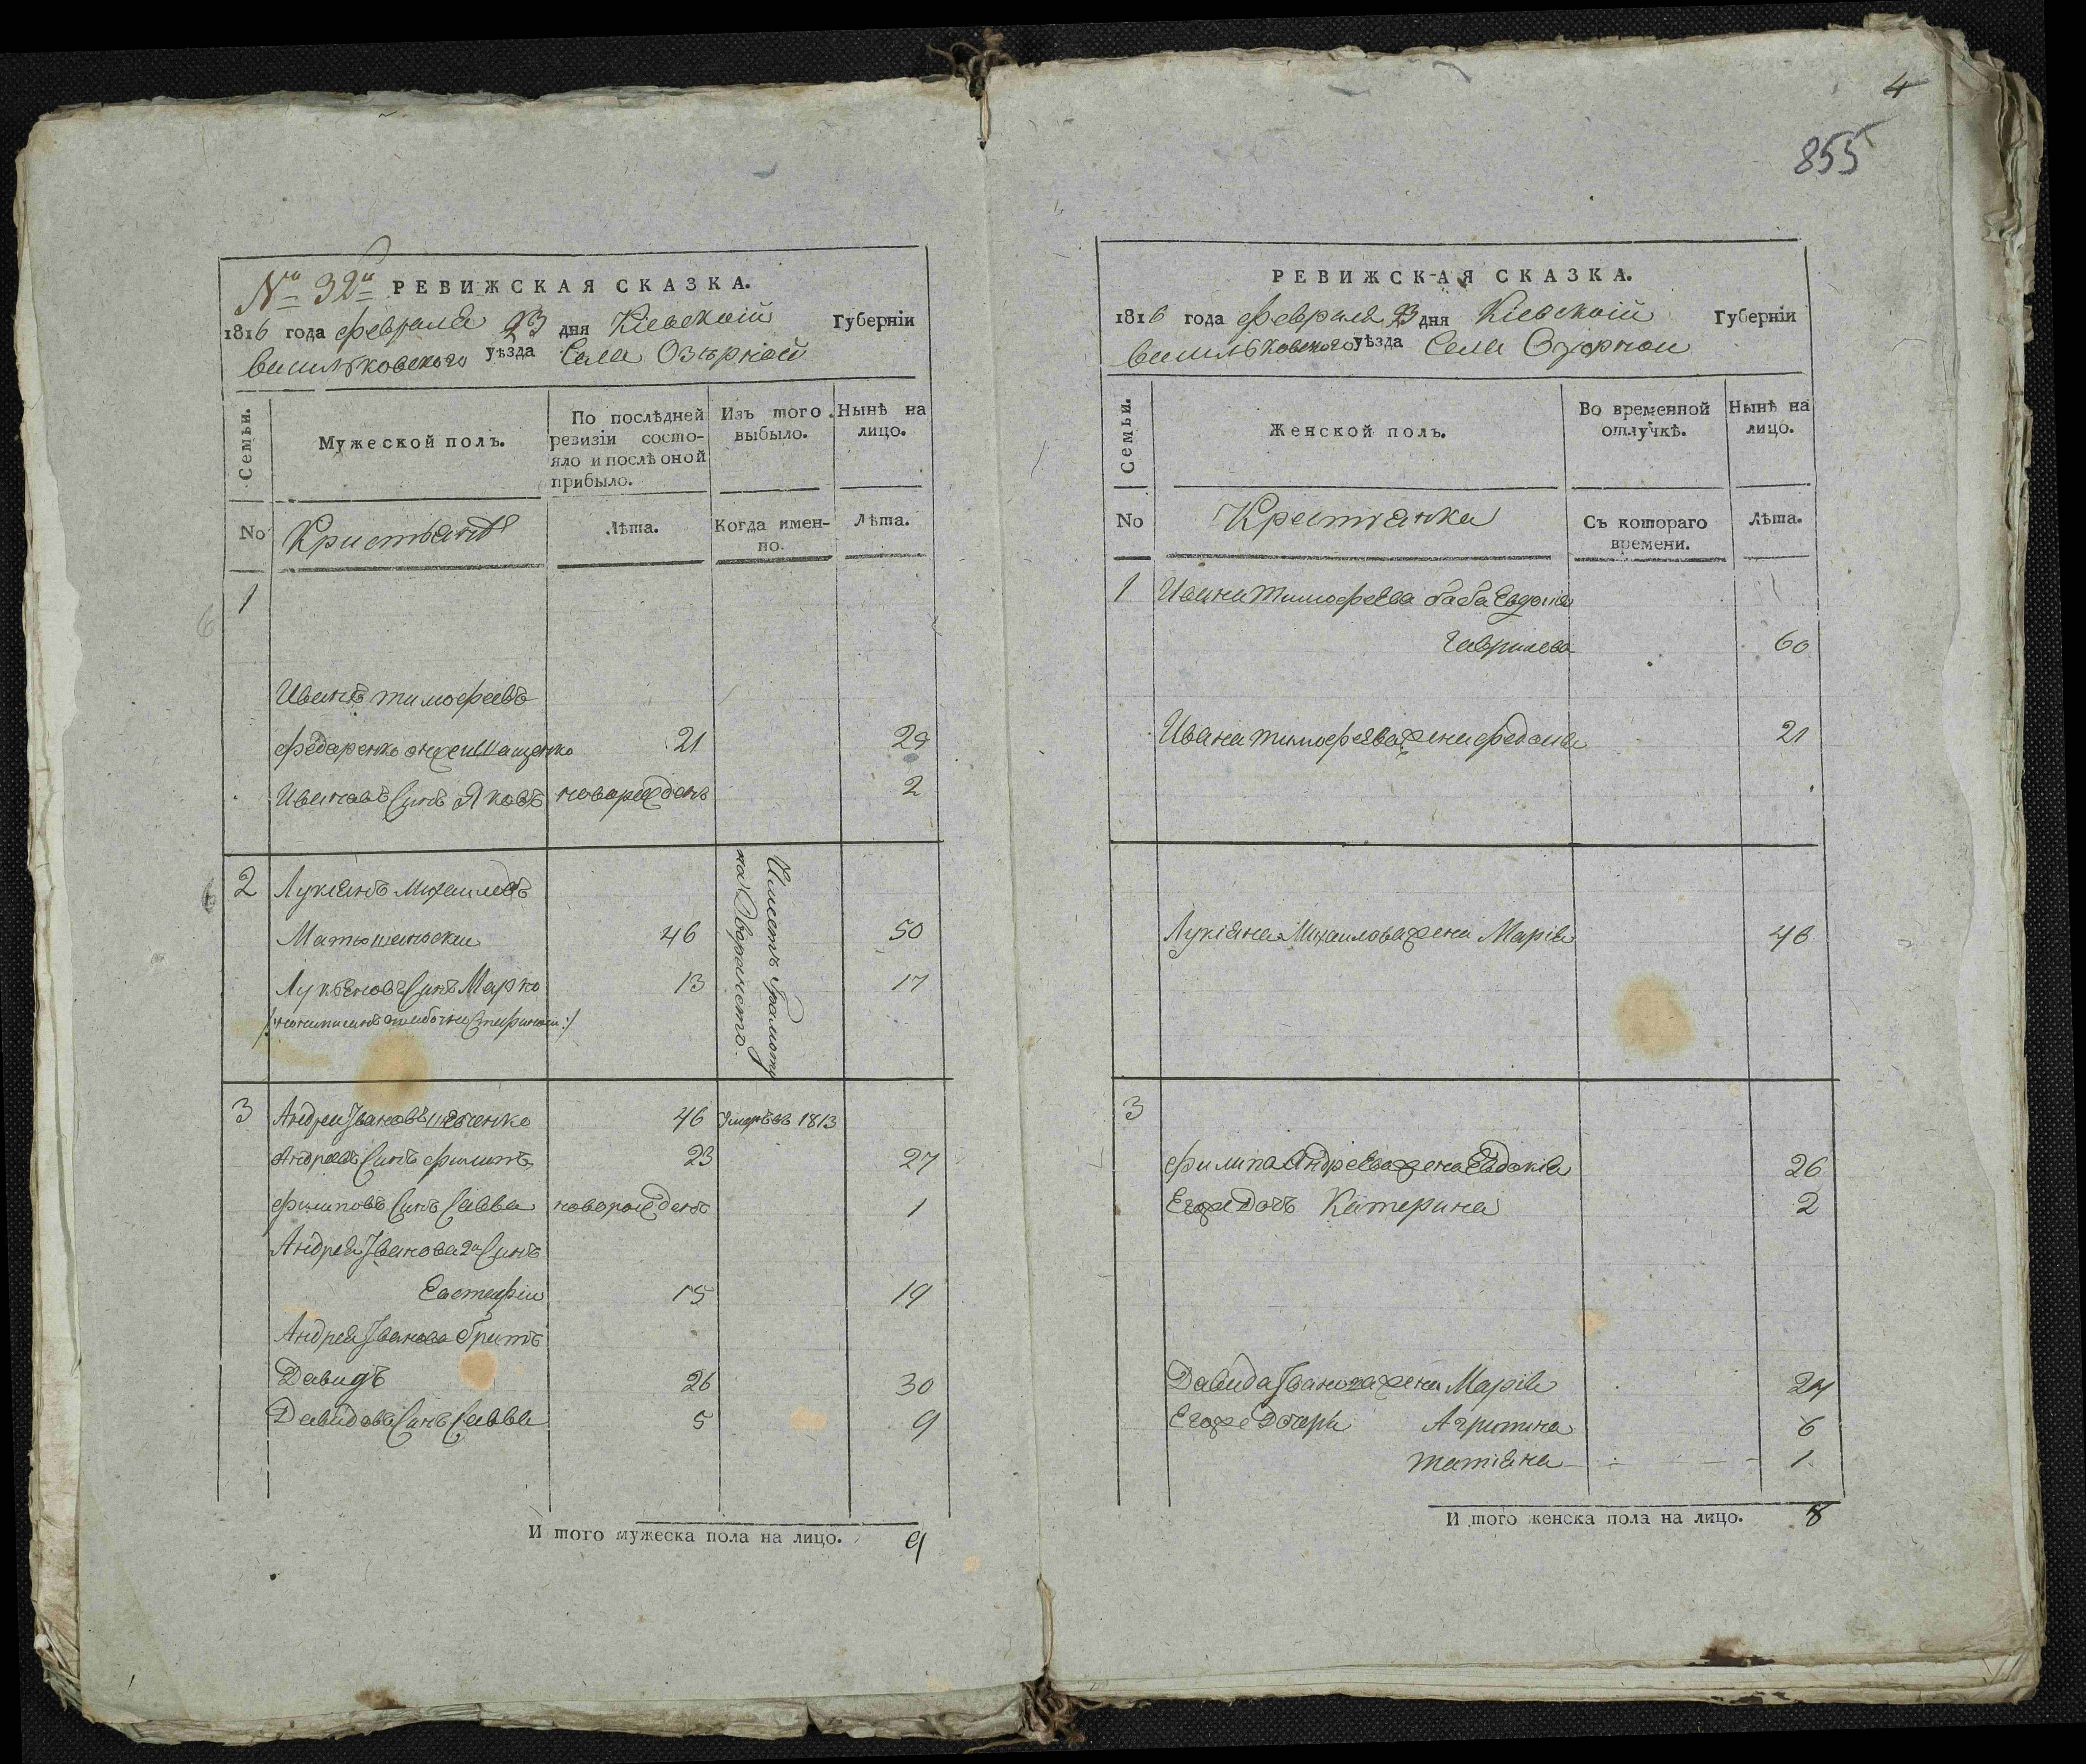 № 32й РЕВИЖСКАЯ СКАЗКА.
1816 года февраля 23 дня Кіевской Губерніи
Васильковского уѣзда Села Озѣрной
Семьи.
Мужеской полъ.
По послѣдней ревизіи состо-
яло и послѣ оной
прибыло.
Изъ того выбыло.
Нынѣ на лицо.
No
Лѣта.
Когда имен-
но.
Лѣта.
1
Иванъ тимофеевъ
федаренко онже Шащенко 21 29
Ивановъ Синъ Яковъ новорожденъ 2
2 Лукіянъ Михаиловъ
46 50
Лукьяновъ Синъ Марко 13 17
Имеетъ Грамоту
на Дворянство
3 Андреи Івановъ шевченко 46 Умерѣвъ 1813
Андреевъ Синъ филипъ 23 27
филиповъ Синъ Савва новорожденъ 1
Андрея Іванова 2й Синъ
Евстафіи 15 19
Андрея Іванова братъ
Давидъ 26 30
Давидовъ Синъ Савва 5 9
И того мужеска пола на лицо. 9
4
855
РЕВИЖСКАЯ СКАЗКА.
1816 года февраля 23 дня Кіевской Губерніи
Васильковского уѣзда Села Озюрнои
Семьи.
Женской полъ.
Во временной
отлучкѣ.
Нынѣ на
лицо.
No
Съ котораго
времени.
Лѣта.
1 Ивана тимофеева баба
гаврилова 60
Ивана тимофеева жена 21
Лукіяна Михаилова жена Марія 48
3
филипа Андреева жена Евдокія 26
Егоже Дочь Катерина 2
Давида Іванова жена Марія 24
Егоже Дочери Агрипина 6
татіяна 1
И того женска пола на лицо. 8